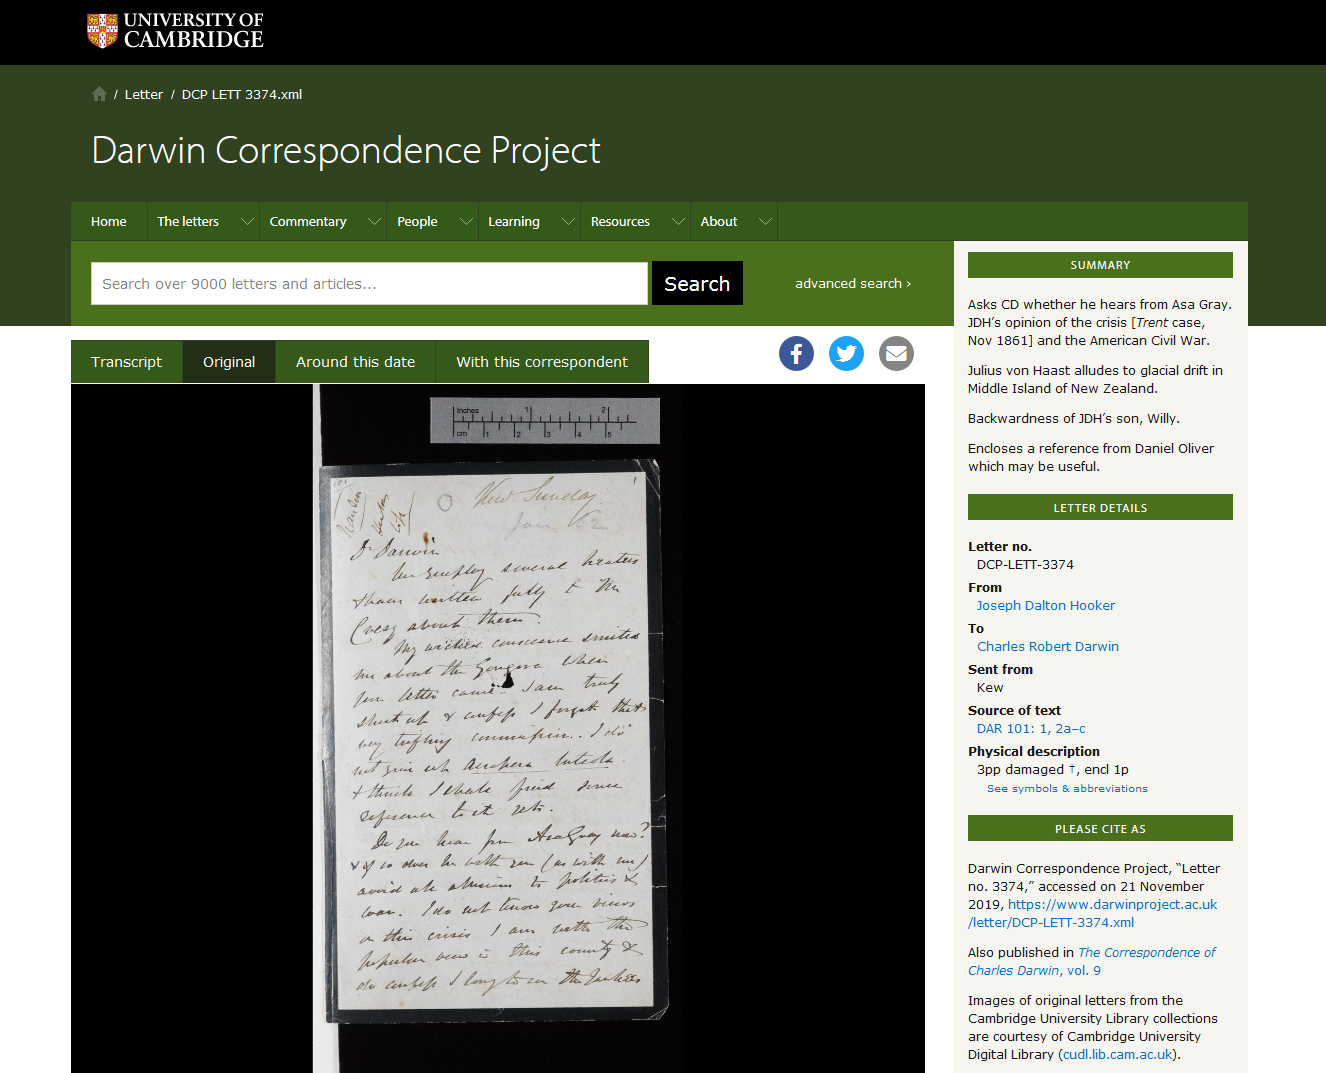 UNIVERSITY OF
CAMBRIDGE
/ Letter / DCP LETT 3374.xml
Darwin Correspondence Project
Home The letters Commentary People Learning Resources About
Search over 9000 letters and articles...
Search
advanced search ›
Transcript Original Around this date With this correspondent
Inches 1 2
cm 1 2 3 4 5
Kew Sunday
Jan /62
Dr Darwin
We employ several heaters
& have written fully to Mr
about them.
My wicked conscience smites
me about the Gongora when
your letter came I am truly
& confess I forget that
very trifling commission. I do
not give up Acropera luteola
& think I shall find some
reference to it yet.
Do you hear from Asa Gray now?
& if so does he with you (as with me)
avoid all allusions to politics &
war. I do not know your views
on this crisis I am with the
popular view in this country &
do confess I long to
SUMMARY
Asks CD whether he hears from Asa Gray.
JDH’s opinion of the crisis [Trent case,
Nov 1861] and the American Civil War.
Julius von Haast alludes to glacial drift in
Middle Island of New Zealand.
Backwardness of JDH’s son, Willy.
Encloses a reference from Daniel Oliver
which may be useful.
LETTER DETAILS
Letter no.
DCP-LETT-3374
From
Joseph Dalton Hooker
To
Charles Robert Darwin
Sent from
Kew
Source of text
DAR 101: 1, 2a–c
Physical description
3pp damaged †, encl 1p
See symbols & abbreviations
PLEASE CITE AS
Darwin Correspondence Project, “Letter
no. 3374,” accessed on 21 November
2019, https://www.darwinproject.ac.uk
/letter/DCP-LETT-3374.xml
Also published in The Correspondence of
Charles Darwin, vol. 9
Images of original letters from the
Cambridge University Library collections
are courtesy of Cambridge University
Digital Library (cudl.lib.cam.ac.uk).